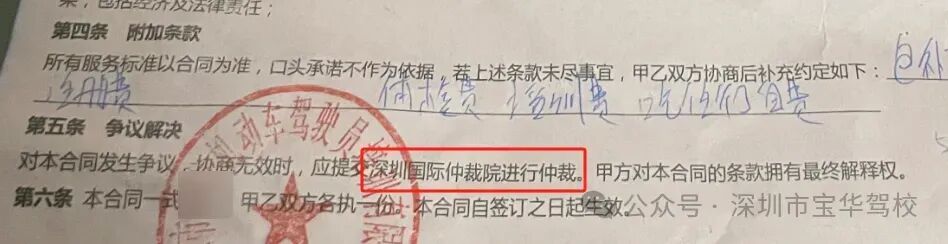 案，包括经济及法律责任；
第四条 附加条款
所有服务标准以合同为准，口头承诺不作为依据，若上述条款未尽事宜，甲乙双方协商后补充约定如下：包补
注册费 体检费 培训费 吃住行自费
第五条 争议解决
对本合同发生争议，协商无效时，应提交深圳国际仲裁院进行仲裁。甲方对本合同的条款拥有最终解释权。
第六条 本合同一式 甲乙双方各执一份。本合同自签订之日起生效。
动车驾驶员培训
公众号·深圳市宝华驾校